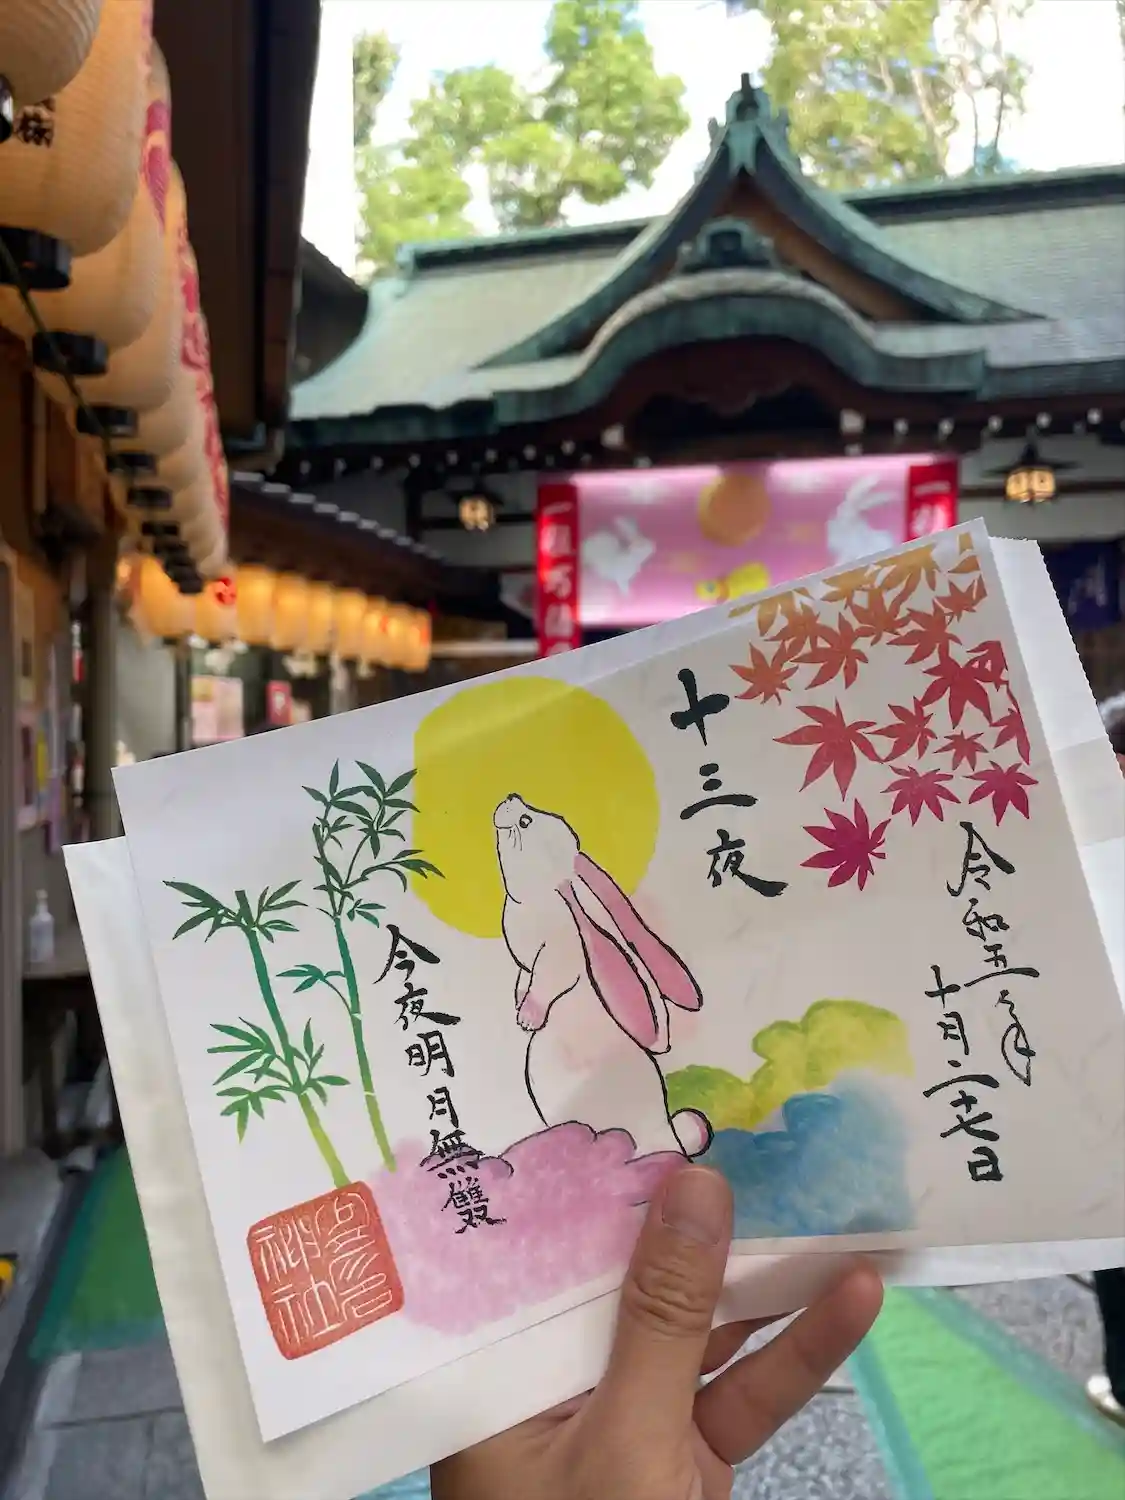 十三夜
令和五年
十月二十七日
今夜明月無雙